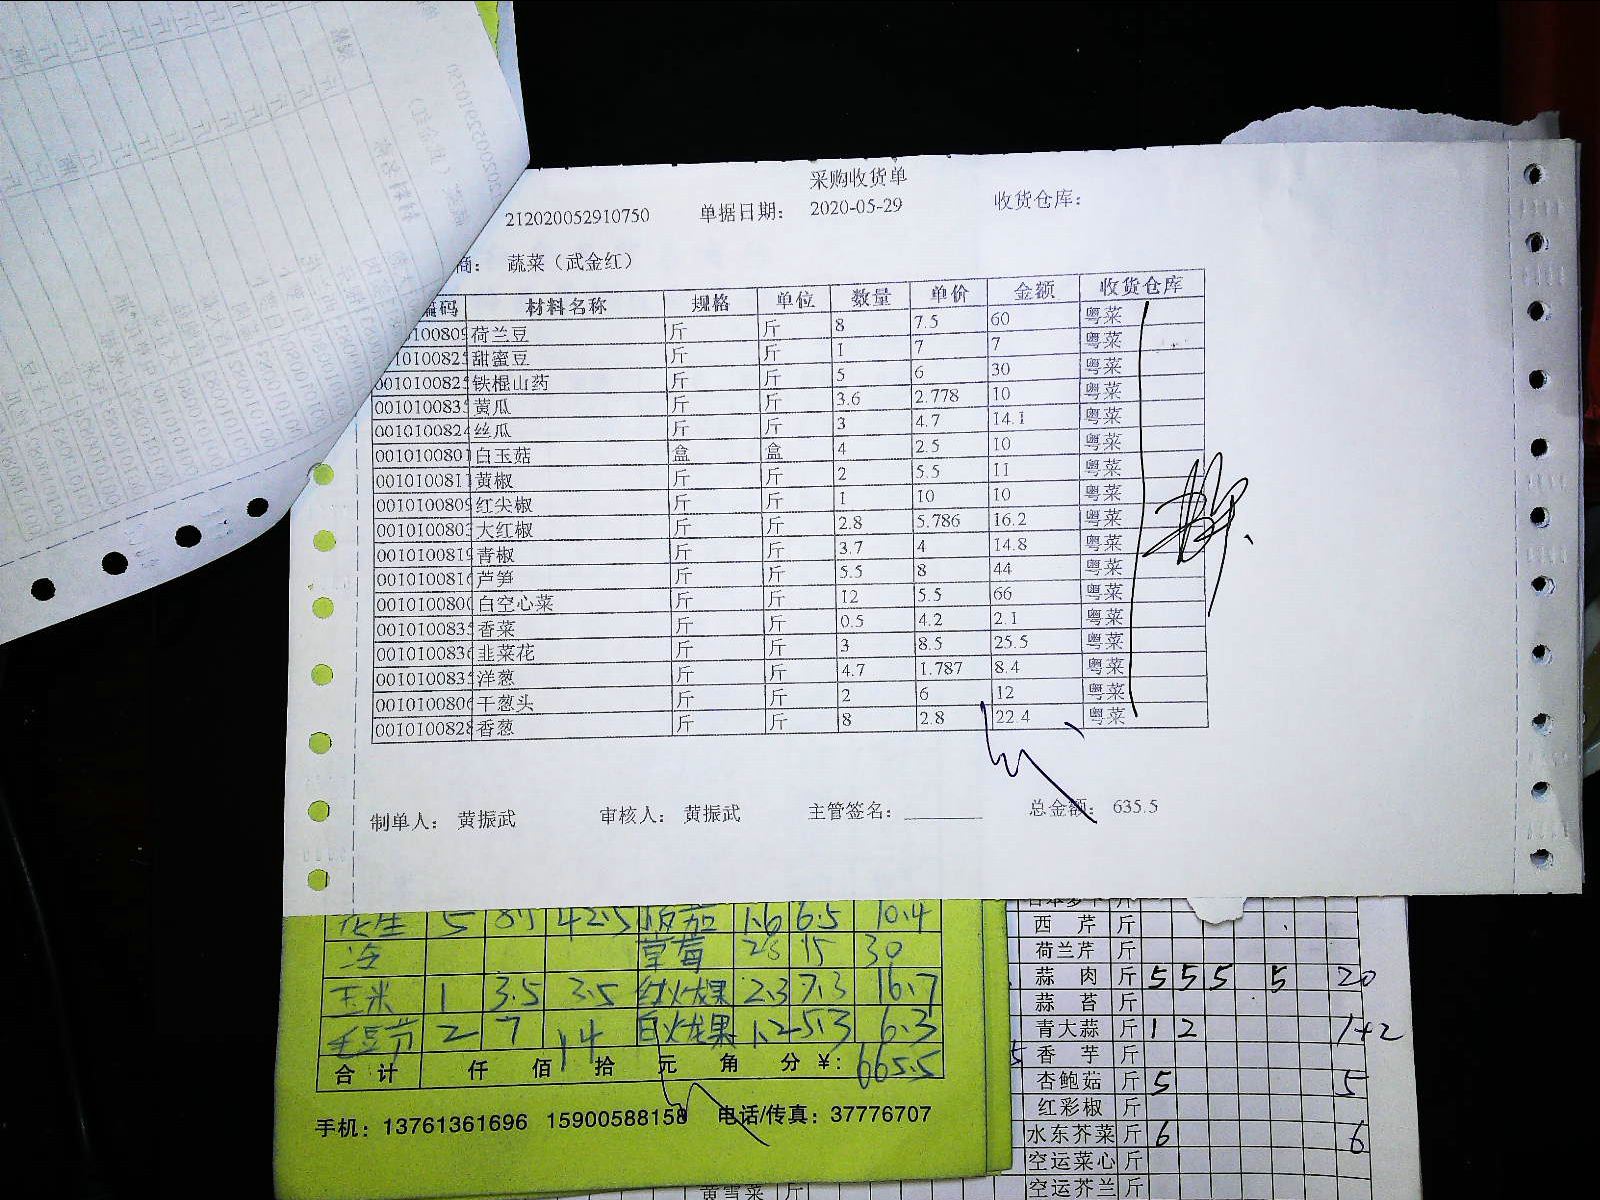 采购收货单
212020052910750 单据日期： 2020-05-29 收货仓库：
商： 蔬菜（武金红）
编码 材料名称 规格 单位 数量 单价 金额 收货仓库
荷兰豆 斤 斤 8 7.5 60 粤菜
甜蜜豆 斤 斤 1 7 7 粤菜
铁棍山药 斤 斤 5 6 30 粤菜
001010083 黄瓜 斤 斤 3.6 2.778 10 粤菜
001010082 丝瓜 斤 斤 3 4.7 14.1 粤菜
001010080 白玉菇 盒 盒 4 2.5 10 粤菜
001010081 黄椒 斤 斤 2 5.5 11 粤菜
001010080 红尖椒 斤 斤 1 10 10 粤菜
001010080 大红椒 斤 斤 2.8 5.786 16.2 粤菜
001010081 青椒 斤 斤 3.7 4 14.8 粤菜
001010081 芦笋 斤 斤 5.5 8 44 粤菜
001010080 白空心菜 斤 斤 12 5.5 66 粤菜
001010083 香菜 斤 斤 0.5 4.2 2.1 粤菜
001010083 韭菜花 斤 斤 3 8.5 25.5 粤菜
001010083 洋葱 斤 斤 4.7 1.787 8.4 粤菜
001010080 干葱头 斤 斤 2 6 12 粤菜
001010082 香葱 斤 斤 8 2.8 22.4 粤菜
制单人： 黄振武 审核人： 黄振武 主管签名： 总金额： 635.5
花生 5 8.5 42.5 番茄 1.6 6.5 10.4
草莓 15 30
玉米 1 3.5 3.5 红火龙果 2.3 7.3 16.7
毛豆节 2 7 14 白火龙果 1.2 5.3 6.3
合计 仟 佰 拾 元 角 分 ¥: 665.5
手机：13761361696 15900588158 电话/传真：37776707
西芹 斤
荷兰芹 斤
蒜肉 斤 5 5 5 5 20
蒜苔 斤
青大蒜 斤 1 2 1+2
香芋 斤
杏鲍菇 斤 5 5
红彩椒 斤
水东芥菜 斤 6 6
空运菜心 斤
空运芥兰 斤
黄雪菜 斤